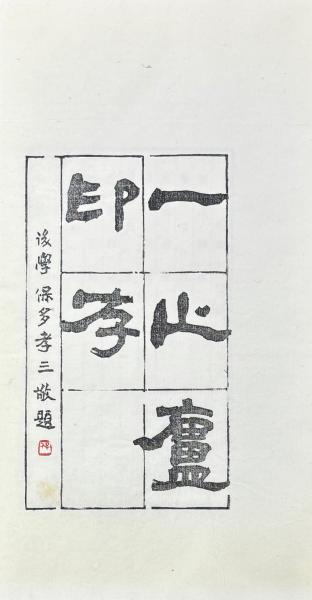 一心廬
印存
後學保多孝三敬題